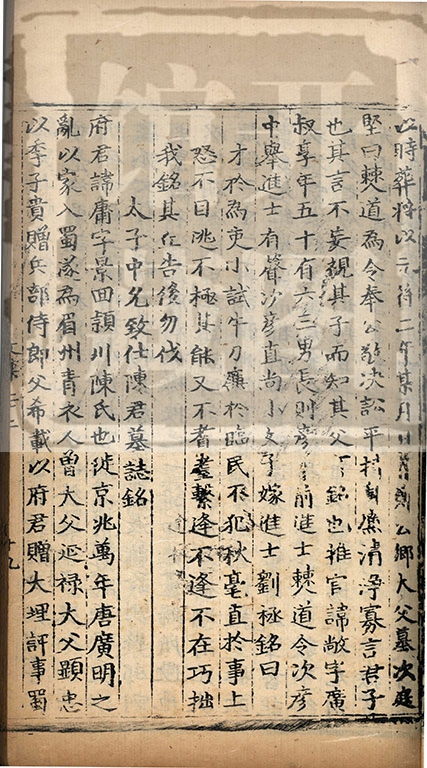 以時葬將以元符二年某月日葬公鄉大父墓次庭
堅曰棘道為令奉公敬決訟平持身廉清淨寡言君子
也其言不妄觀其子而知其父可銘也推官諱敞字廣
叔享年五十有六三男長則彥前進士棘道令次彥
中舉進士有聲次彥直尚小女嫁進士劉極銘曰
才於為吏小試牛刀廉於臨民不犯秋毫直於事上
怒不目逃不極其能又不耆耋繫逢不逢不在巧拙
我銘其仁告後勿伐
太子中允致仕陳君墓誌銘
府君諱庸字景回潁川陳氏也徙京兆萬年唐廣明之
亂以家入蜀遂為眉州青衣人曾大父延祿大父顯忠
以季子貴贈兵部侍郎父希載以府君贈大理評事蜀
十九